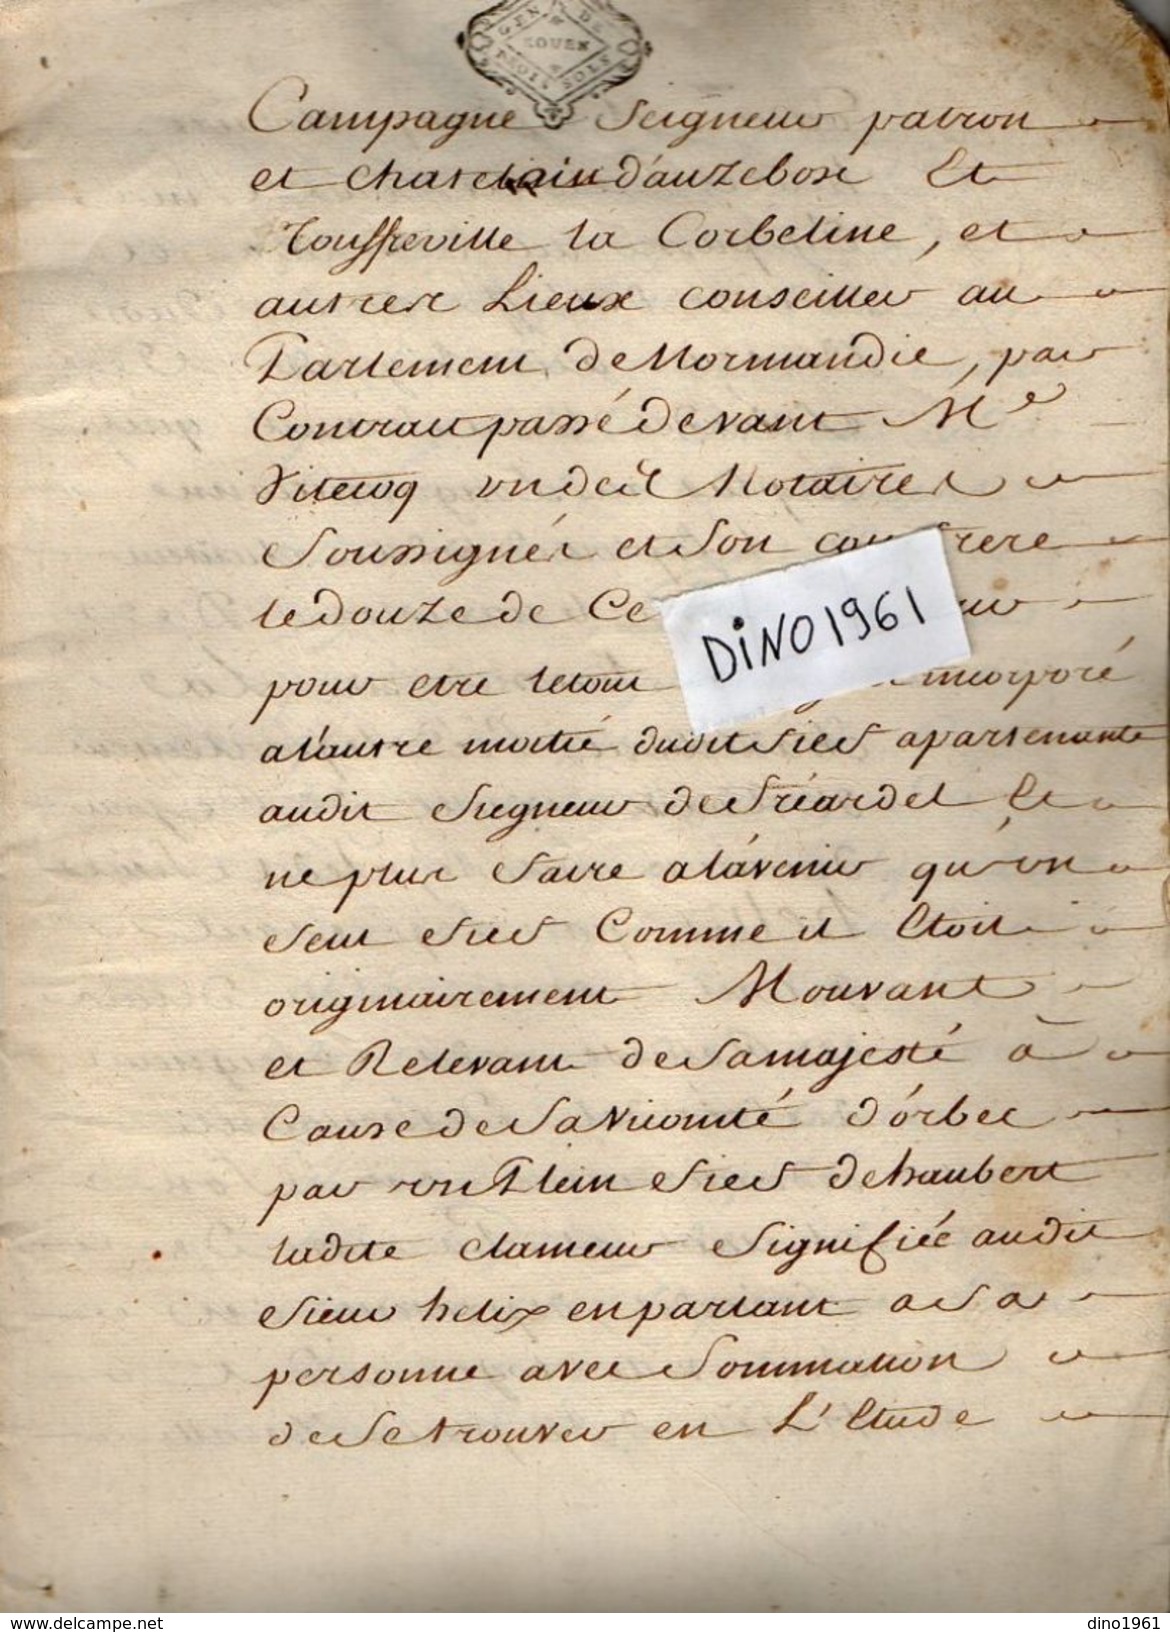 GEN DE
ROUEN
SOLS
Campagne Seigneur patron
et chatelain d'auzebosc Et
Touffreville la Corbeline, et
autres Lieux conseiller au
Parlement de Normandie, par
Contract passé devant Me
Vitecoq un des Notaires
Soussignés et Son frere
le douze de Ce
pour etre incorporé
a l'autre moitié dudit fief apartenante
audit Seigneur de fréardel Et
ne plus faire a l'avenir qu'un
seul fief Comme il Etoit
originairement Mouvant
et Relevant de Sa majesté à
Cause de Sa Vicomté d'órbec
par un Plein fief de haubert
ladite clameur Signifiée audit
sieur helix en parlant a Sa
personne avec Sommation
de Se trouver en L'Etude
DiNO1961
www.delcampe.net
dino1961